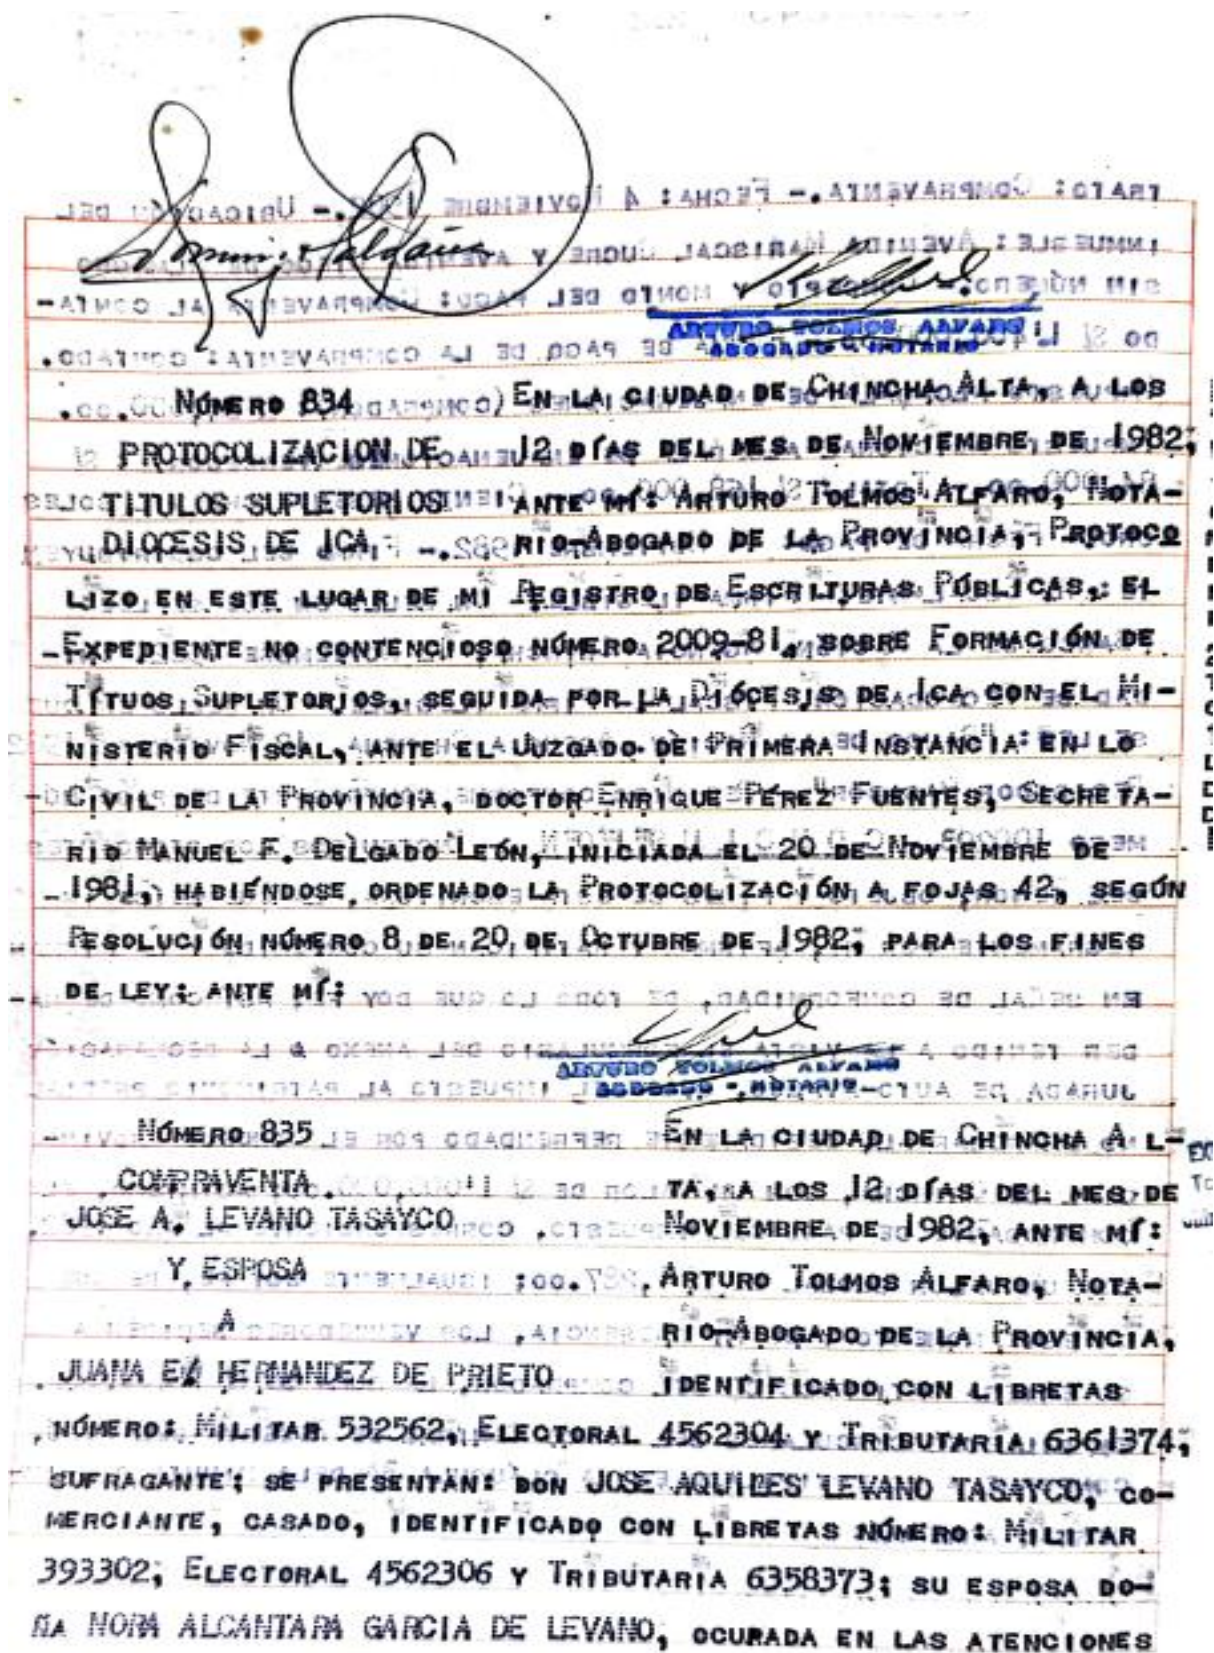 ARTURO TOLMOS ALFARO
ABOGADO - NOTARIO
NÚMERO 834 EN LA CIUDAD DE CHINCHA ALTA, A LOS
PROTOCOLIZACION DE 12 DÍAS DEL MES DE NOVIEMBRE DE 1982;
TITULOS SUPLETORIOS ANTE MÍ: ARTURO TOLMOS ALFARO, NOTA-
DIOCESIS DE ICA .- RIO-ABOGADO DE LA PROVINCIA, PROTOCO
LIZO EN ESTE LUGAR DE MI REGISTRO DE ESCRITURAS PÚBLICAS,: EL
EXPEDIENTE NO CONTENCIOSO NÚMERO 2009-81, SOBRE FORMACIÓN DE
TÍTUOS SUPLETORIOS, SEGUIDA POR LA DIÓCESIS DE ICA CON EL MI-
NISTERIO FISCAL, ANTE EL JUZGADO DE PRIMERA INSTANCIA EN LO
CIVIL DE LA PROVINCIA, DOCTOR ENRIQUE PÉREZ FUENTES, SECRETA-
RIO MANUEL F. DELGADO LEÓN, INICIADA EL 20 DE NOVIEMBRE DE
1981, HABIÉNDOSE ORDENADO LA PROTOCOLIZACIÓN A FOJAS 42, SEGÚN
RESOLUCIÓN NÚMERO 8 DE 20 DE OCTUBRE DE 1982; PARA LOS FINES
DE LEY; ANTE MÍ:
ARTURO TOLMOS ALFARO
ABOGADO - NOTARIO
NÚMERO 835 EN LA CIUDAD DE CHINCHA AL-
COMPRAVENTA. TA, A LOS 12 DÍAS DEL MES DE
JOSE A. LEVANO TASAYCO NOVIEMBRE DE 1982, ANTE MÍ:
Y ESPOSA ARTURO TOLMOS ALFARO, NOTA-
A RIO-ABOGADO DE LA PROVINCIA,
JUANA E. HERNANDEZ DE PRIETO IDENTIFICADO CON LIBRETAS
NÚMERO: MILITAR 532562, ELECTORAL 4562304 Y TRIBUTARIA 6361374,
SUFRAGANTE; SE PRESENTAN: DON JOSE AQUILES LEVANO TASAYCO, CO-
MERCIANTE, CASADO, IDENTIFICADO CON LIBRETAS NÚMERO: MILITAR
393302; ELECTORAL 4562306 Y TRIBUTARIA 6358373; SU ESPOSA DO-
ÑA NORA ALCANTARA GARCIA DE LEVANO, OCURADA EN LAS ATENCIONES